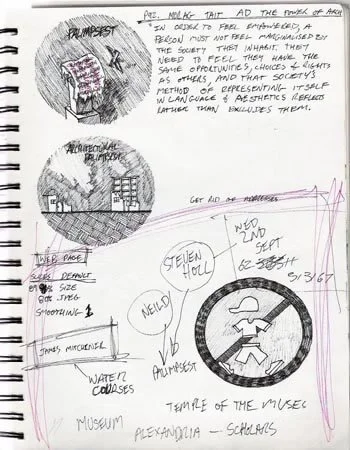 P92. MORAG TAIT AD THE POWER OF ARCH
"IN ORDER TO FEEL EMPOWERED, A
PERSON MUST NOT FEEL MARGINALISED BY
THE SOCIETY THEY INHABIT. THEY
NEED TO FEEL THEY HAVE THE
SAME OPPORTUNITIES, CHOICES & RIGHTS
AS OTHERS, AND THAT SOCIETY'S
METHOD OF REPRESENTING ITSELF
IN LANGUAGE & AESTHETICS REFLECTS
RATHER THAN EXCLUDES THEM.
PALIMPSEST
ARCHITECTURAL
PALIMPSEST
GET RID OF
WEB PAGE
DEFAULT
SIZE
80% JPEG
SMOOTHING 1
STEVEN
HOLL
WED
2ND
SEPT
5/3/67
NEILD
PALIMPSEST
JAMES MITCHENER
WATER
COURSES
TEMPLE OF THE MUSES
MUSEUM
ALEXANDRIA — SCHOLARS